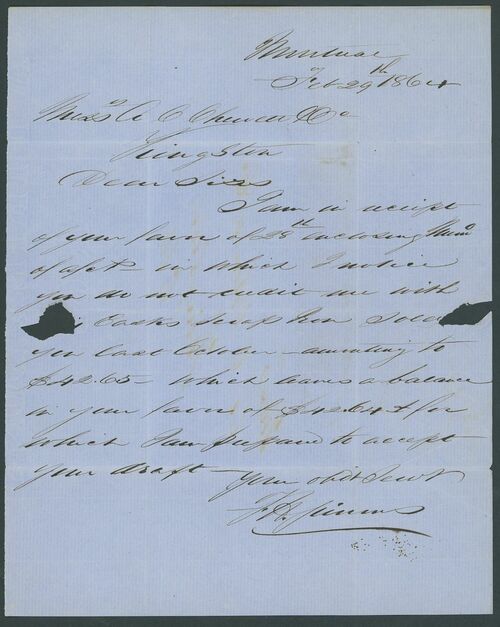 Montreal
Feb 29th 1864
Messrs A C Chewett & Co
Kingston
Dear Sirs
I am in receipt
of your favor of 28th inclosing Memo
of a/c in which I notice
you do not credit me with
Casks Scrap Iron Sold
you last October amounting to
$42.65 - which leaves a balance
in your favor of $42.64 & for
which I am prepared to accept
your draft
Your obdt Servt